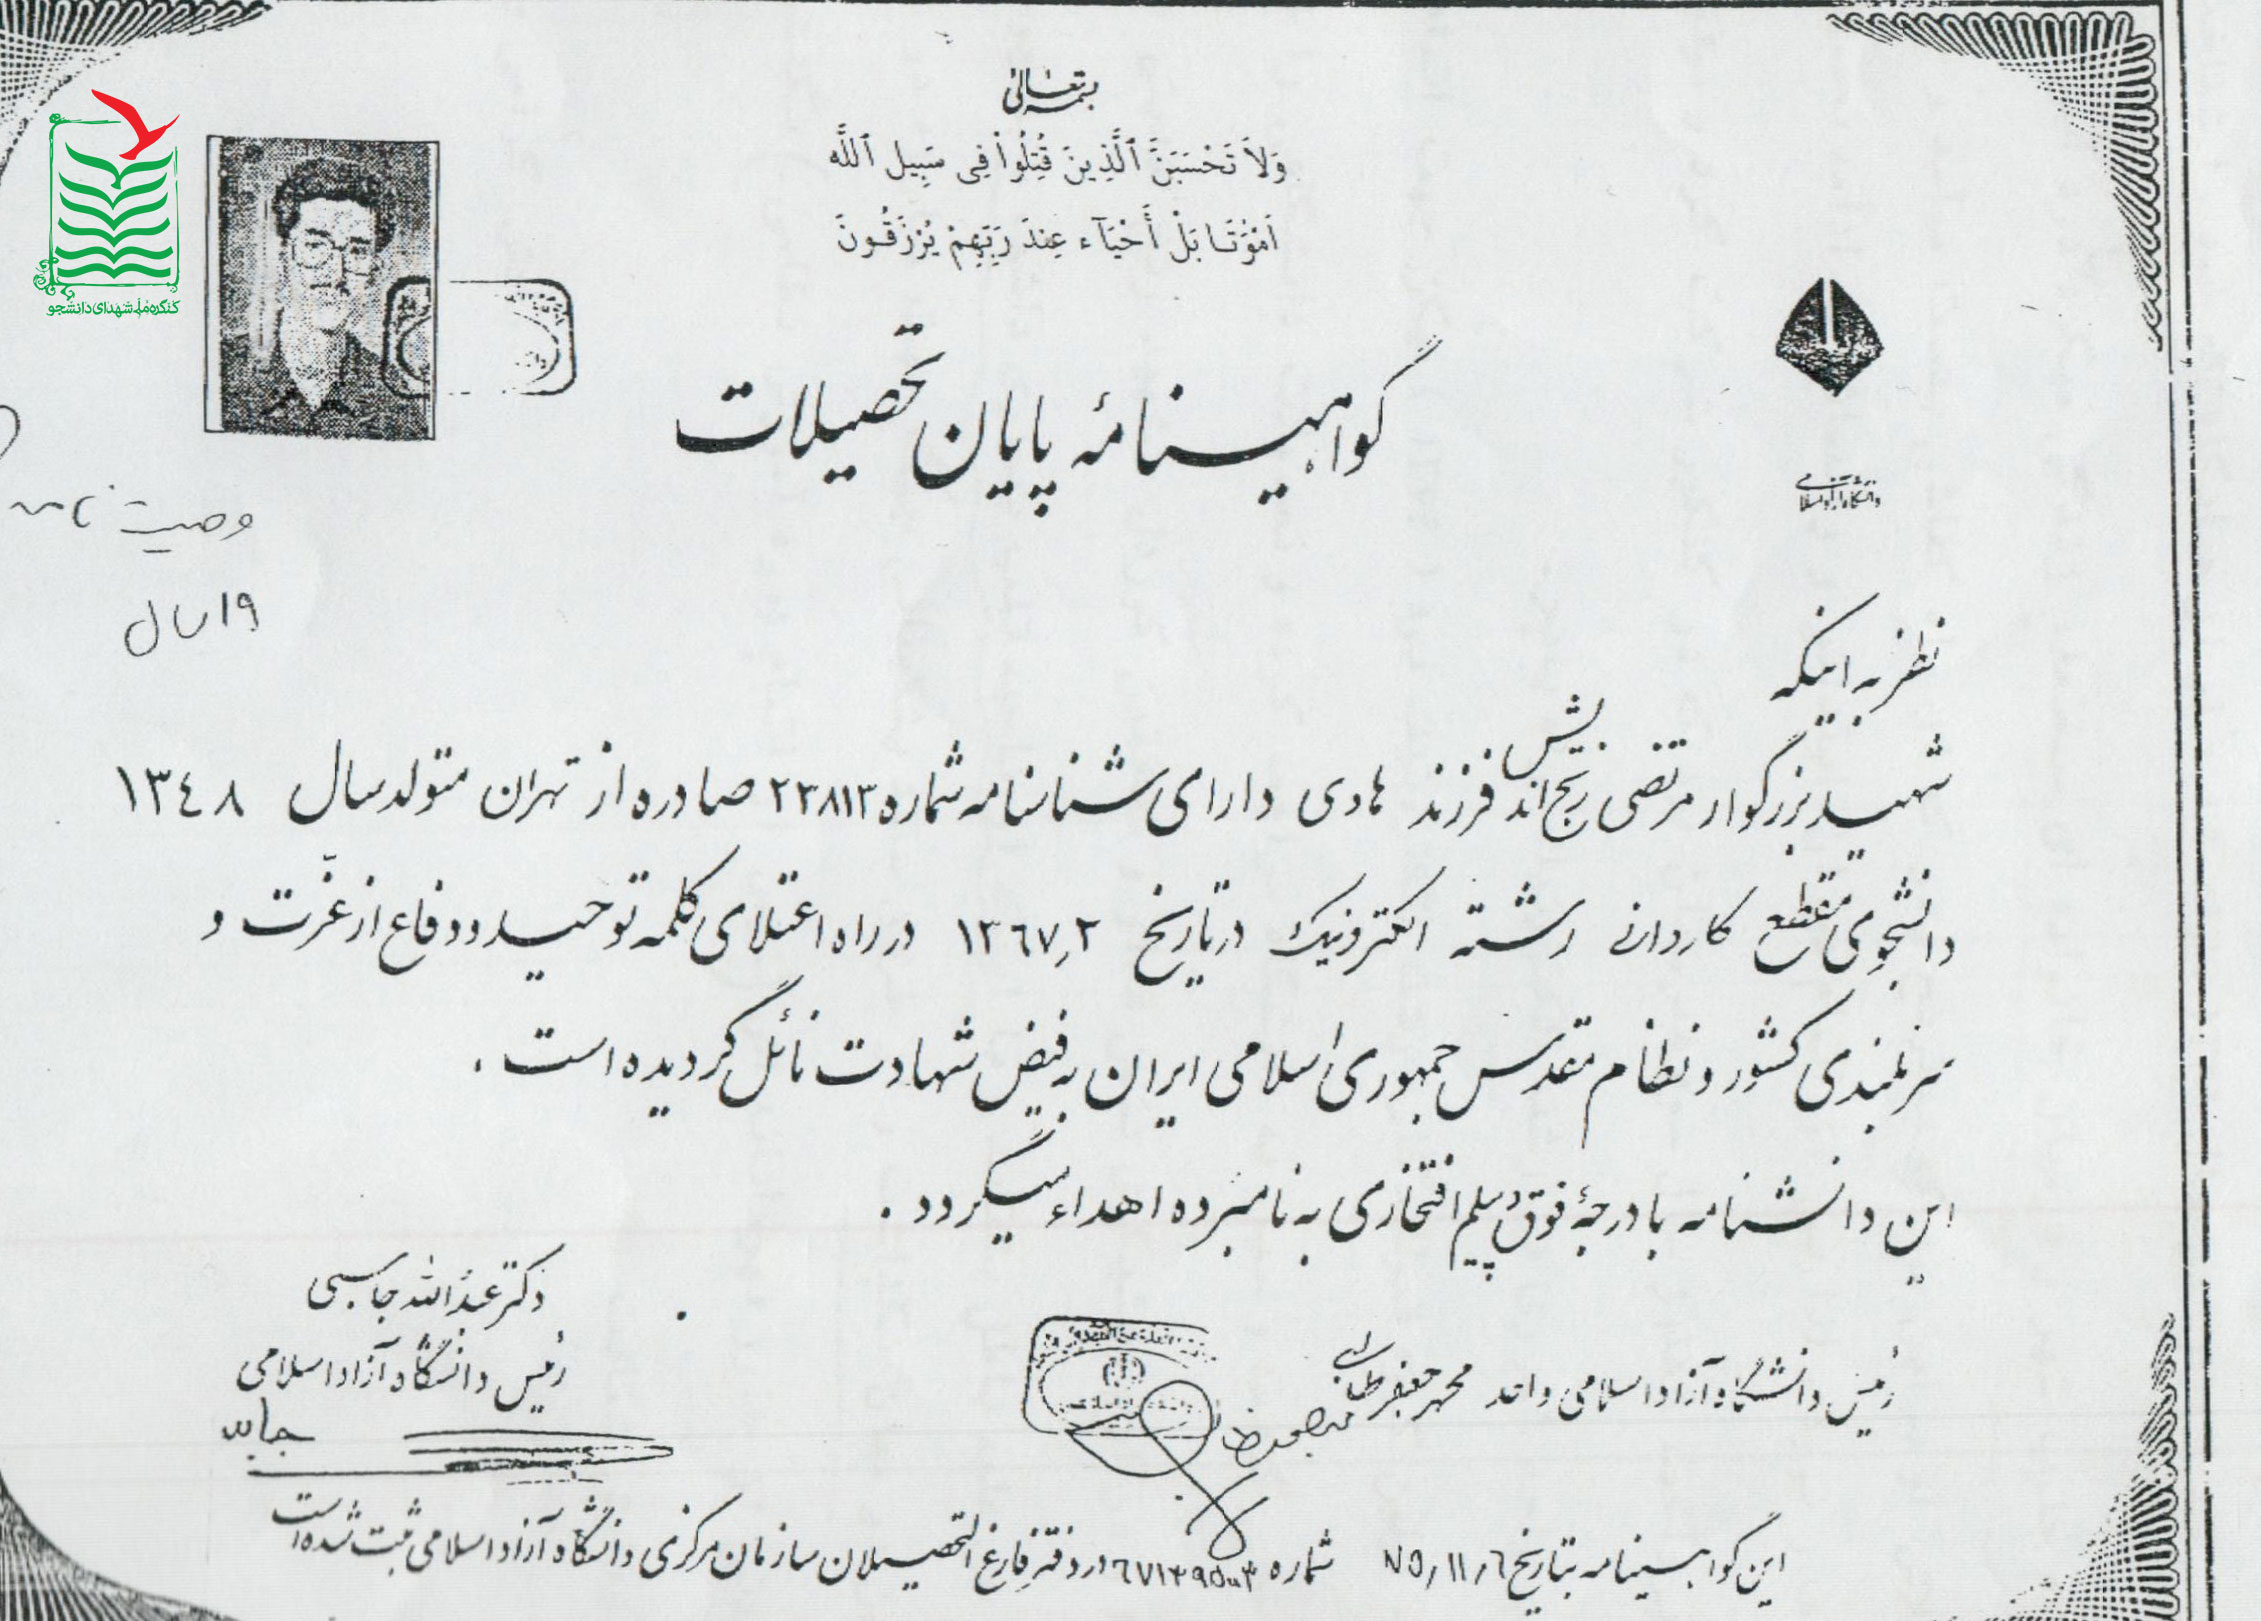 بسمه تعالی
وَلاَ تَحْسَبَنَّ ٱلَّذِينَ قُتِلُواْ فِى سَبِيلِ ٱللَّه
اَمْوَٰتَا بَلْ أَحْيَآء عِندَ رَبِّهِمْ يُرْزَقُونَ
کنگره ملی شهدای دانشجو
گواهینامهٔ پایان تحصیلات
دانشگاه آزاد اسلامی
وصیت نامه
۱۹ سال
نظر به اینکه
شهید بزرگوار مرتضی رنج اندیش فرزند هادی دارای شناسنامه شماره ۲۳۸۱۳ صادره از تهران متولد سال ۱۳٤۸
دانشجوی مقطع کاردانی رشته الکترونیک در تاریخ ۱۳٦۷٫۲ در راه اعتلای کلمه توحید و دفاع از عزّت و
سربلندی کشور و نظام مقدس جمهوری اسلامی ایران به فیض شهادت نائل گردیده است .
این دانشنامه با درجهٔ فوق دیپلم افتخاری به نامبرده اهداء میگردد .
دکتر عبدالله جاسبی
رئیس دانشگاه آزاد اسلامی
رئیس دانشگاه آزاد اسلامی واحد محمد جعفر
این گواهینامه بتاریخ ۷۵٫۱۱٫٦ شماره در دفتر فارغ التحصیلان سازمان مرکزی دانشگاه آزاد اسلامی ثبت شده است